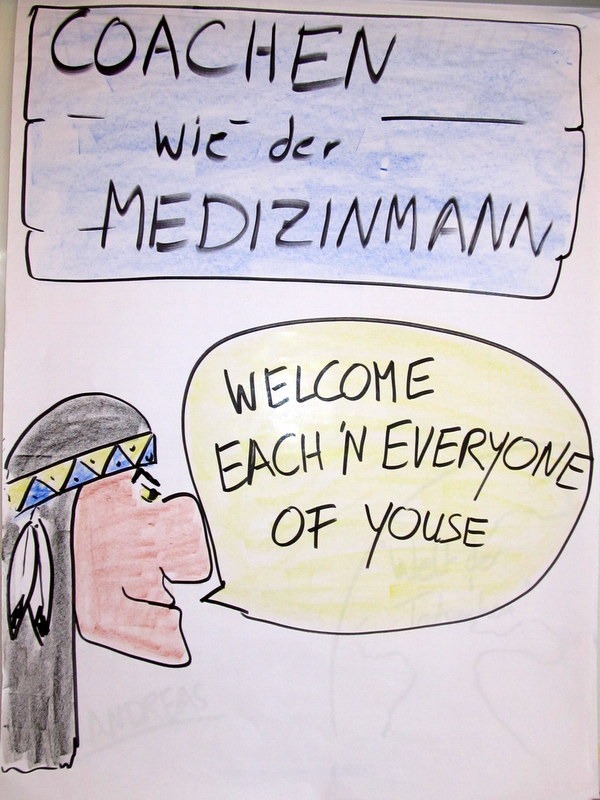 COACHEN
wie der
MEDIZINMANN
WELCOME
EACH 'N EVERYONE
OF YOUSE
ANDREAS